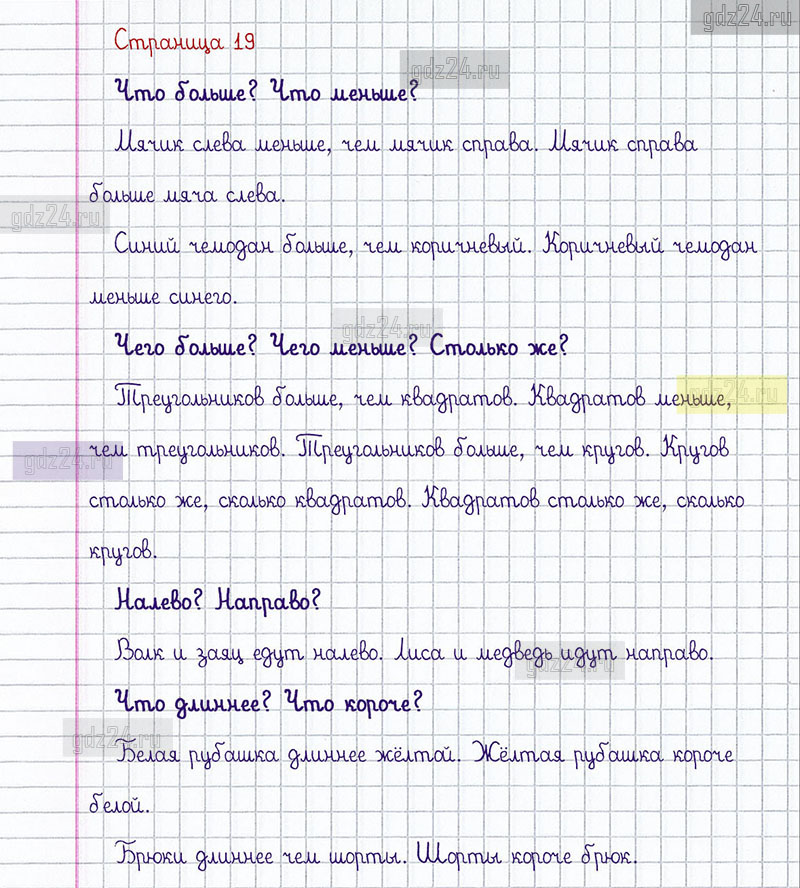 gdz24.ru
Страница 19
gdz24.ru
Что больше? Что меньше?
Мячик слева меньше, чем мячик справа. Мячик справа
больше мяча слева.
gdz24.ru
Синий чемодан больше, чем коричневый. Коричневый чемодан
меньше синего.
gdz24.ru
Чего больше? Чего меньше? Столько же?
Треугольников больше, чем квадратов. Квадратов меньше,
gdz24.ru
чем треугольников. Треугольников больше, чем кругов. Кругов
gdz24.ru
столько же, сколько квадратов. Квадратов столько же, сколько
кругов.
Налево? Направо?
Волк и заяц едут налево. Лиса и медведь идут направо.
gdz24.ru
Что длиннее? Что короче?
gdz24.ru
Белая рубашка длиннее жёлтой. Жёлтая рубашка короче
белой.
Брюки длиннее чем шорты. Шорты короче брюк.